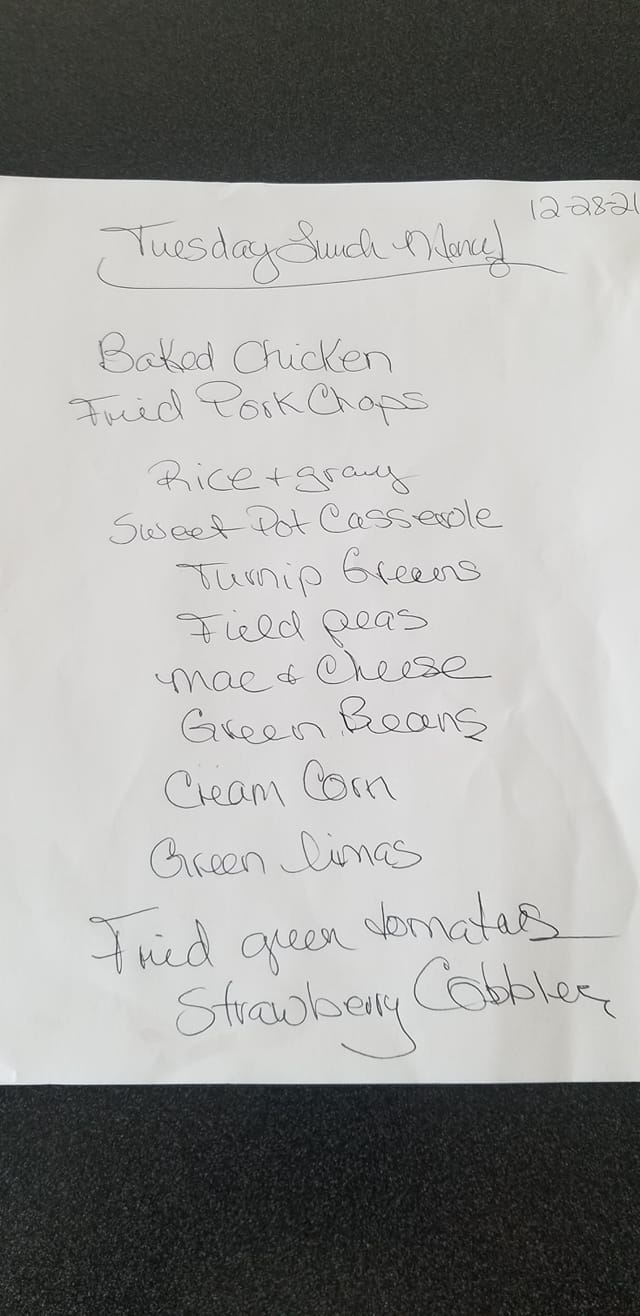 12-28-21
Tuesday Lunch Menu
Baked Chicken
Fried Pork Chops
Rice + gravy
Sweet Pot Casserole
Turnip Greens
Field peas
Mac & Cheese
Green Beans
Cream Corn
Green limas
Fried green tomatoes
Strawberry Cobbler